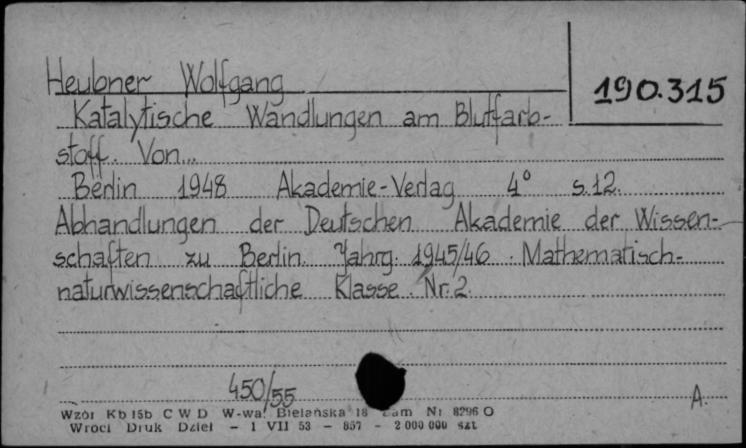 Heubner Wolfgang
190.315
Katalytische Wandlungen am Blutfarb-
stoff. Von...
Berlin 1948 Akademie-Verlag 4° s.12.
Abhandlungen der Deutschen Akademie der Wissen-
schaften zu Berlin. Jahrg. 1945/46. Mathematisch-
naturwissenschaftliche Klasse. Nr.2.
450/55
A.
Wzór Kb 15b C W D W-wa, Bielańska 18 Zam Nr 8296 O
Wrocł Druk Dzieł – 1 VII 53 – 857 – 2 000 000 szt